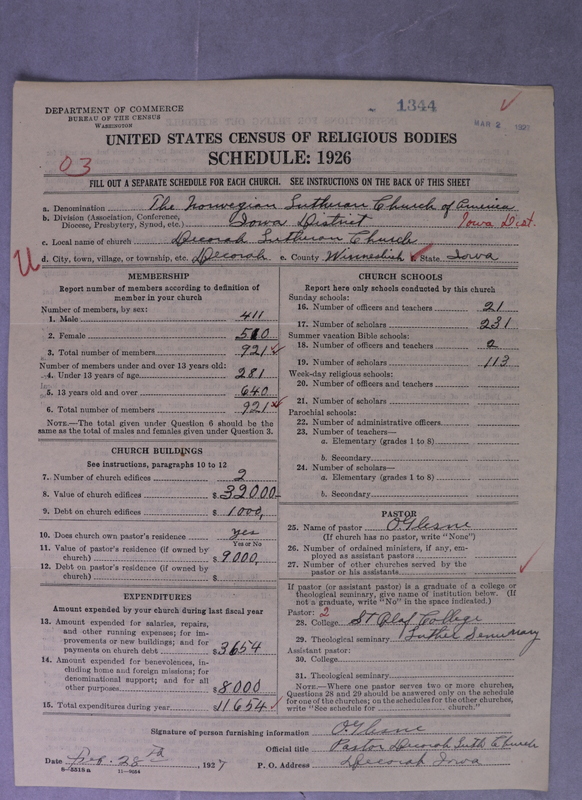 DEPARTMENT OF COMMERCE
BUREAU OF THE CENSUS
WASHINGTON
1344
MAR 2 1927
UNITED STATES CENSUS OF RELIGIOUS BODIES
SCHEDULE: 1926
03
FILL OUT A SEPARATE SCHEDULE FOR EACH CHURCH. SEE INSTRUCTIONS ON THE BACK OF THIS SHEET
a. Denomination The Norwegian Lutheran Church of America
b. Division (Association, Conference, Diocese, Presbytery, Synod, etc.) Iowa District Iowa Dist.
c. Local name of church Decorah Lutheran Church
U d. City, town, village, or township, etc. Decorah e. County Winneshiek State Iowa
MEMBERSHIP
Report number of members according to definition of
member in your church
Number of members, by sex:
1. Male 411
2. Female 510
3. Total number of members 921
Number of members under and over 13 years old:
4. Under 13 years of age 281
5. 13 years old and over 640
6. Total number of members 921
NOTE.—The total given under Question 6 should be
same as the total of males and females given under Question 3.
CHURCH BUILDINGS
See instructions, paragraphs 10 to 12
7. Number of church edifices 2
8. Value of church edifices $32000
9. Debt on church edifices $1000,
10. Does church own pastor's residence yes
Yes or No
11. Value of pastor's residence (if owned by
church) $9000,
12. Debt on pastor's residence (if owned by
church) $
EXPENDITURES
Amount expended by your church during last fiscal year
13. Amount expended for salaries, repairs,
and other running expenses; for im-
provements or new buildings; and for
payments on church debt $3654
14. Amount expended for benevolences, in-
cluding home and foreign missions; for
denominational support; and for all
other purposes $8000
15. Total expenditures during year $11654
CHURCH SCHOOLS
Report here only schools conducted by this church
Sunday schools:
16. Number of officers and teachers 21
17. Number of scholars 231
Summer vacation Bible schools:
18. Number of officers and teachers 2
19. Number of scholars 113
Week-day religious schools:
20. Number of officers and teachers
21. Number of scholars
Parochial schools:
22. Number of administrative officers
23. Number of teachers—
a. Elementary (grades 1 to 8)
b. Secondary
24. Number of scholars—
a. Elementary (grades 1 to 8)
b. Secondary
PASTOR
25. Name of pastor O. Glesne
(If church has no pastor, write "None")
26. Number of ordained ministers, if any, em-
ployed as assistant pastors
27. Number of other churches served by the
pastor or his assistants
If pastor (or assistant pastor) is a graduate of a college or
theological seminary, give name of institution below. (If
not a graduate, write "No" in the space indicated.)
Pastor: 2
28. College St Olaf College
29. Theological seminary Luther Seminary
Assistant pastor:
30. College
31. Theological seminary
NOTE.—Where one pastor serves two or more churches,
Questions 28 and 29 should be answered only on the schedule
for one of the churches; on the schedules for the other churches,
write "See schedule for church."
Signature of person furnishing information O. Glesne
Official title Pastor Decorah Luth Church
Date Feb. 28th, 1927 P. O. Address Decorah Iowa